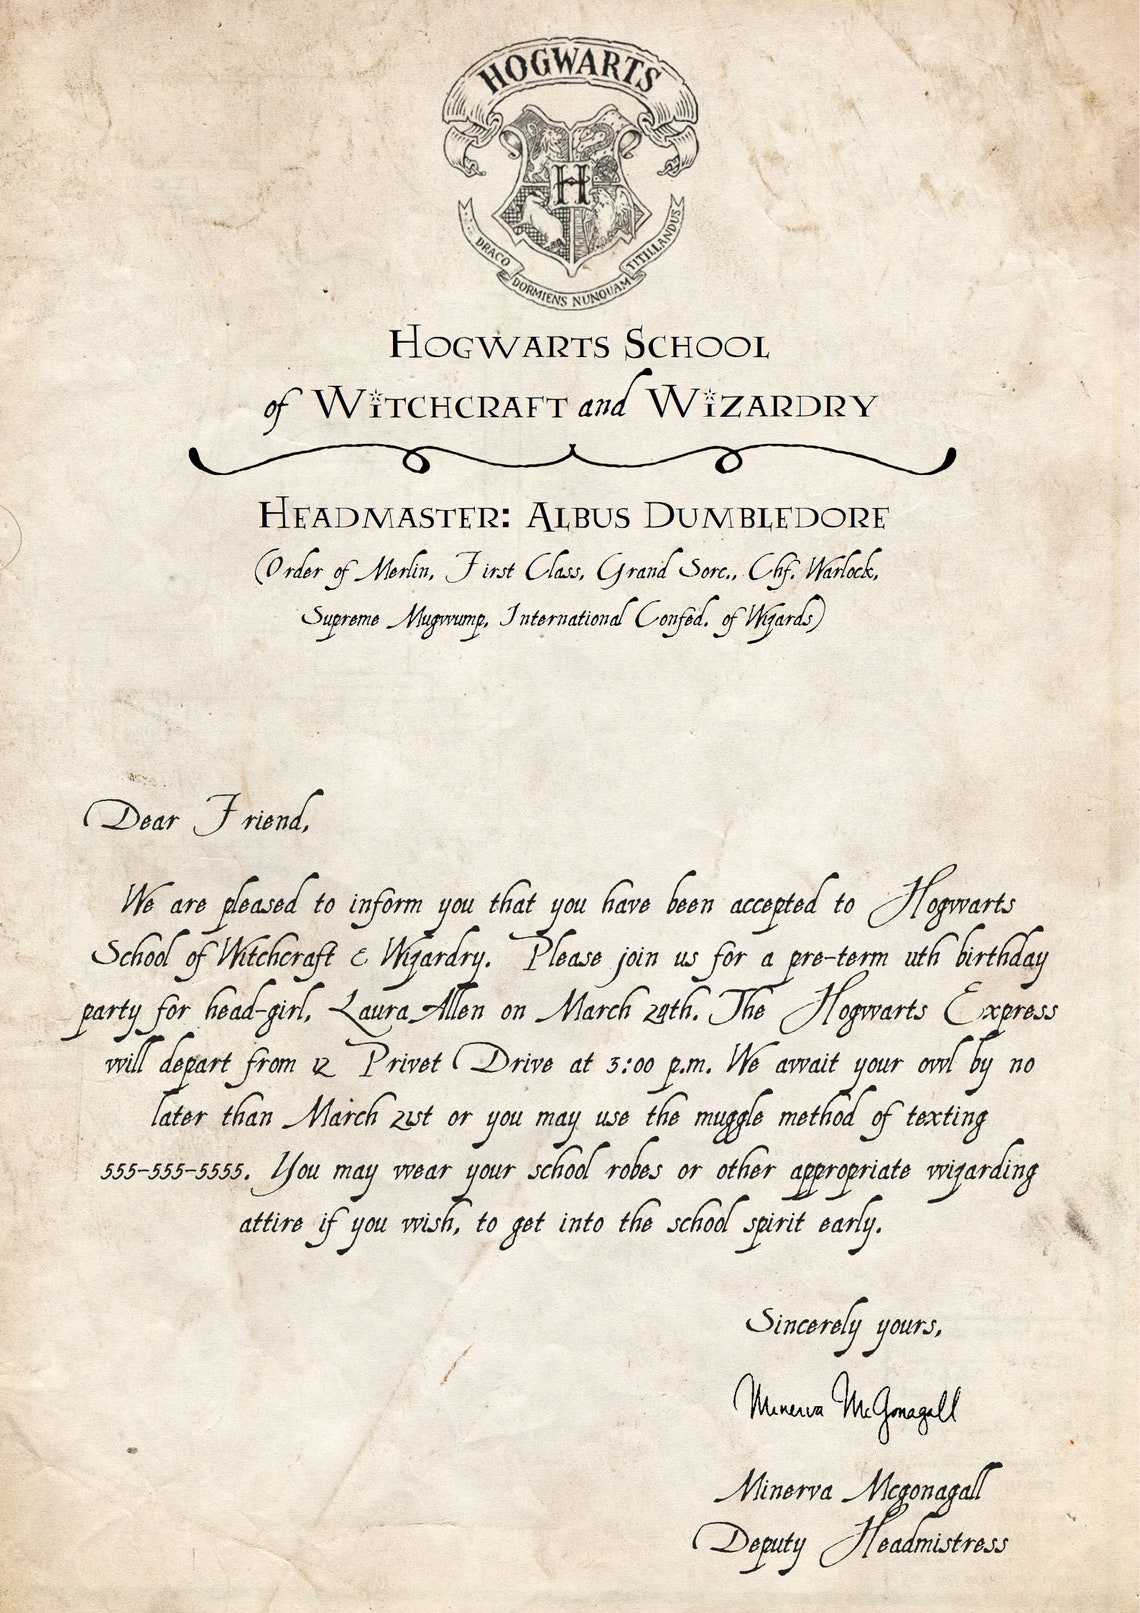 HOGWARTS
H
DRACO DORMIENS NUNQUAM TITILLANDUS
HOGWARTS SCHOOL
of WITCHCRAFT and WIZARDRY
HEADMASTER: ALBUS DUMBLEDORE
(Order of Merlin, First Class, Grand Sorc., Chf. Warlock,
Supreme Mugwump, International Confed. of Wizards)
Dear Friend,
We are pleased to inform you that you have been accepted to Hogwarts
School of Witchcraft & Wizardry. Please join us for a pre-term 11th birthday
party for head-girl, Laura Allen on March The Hogwarts Express
will depart from 12 Privet Drive at 3:00 p.m. We await your owl by no
later than March 21st or you may use the muggle method of texting
555-555-5555. You may wear your school robes or other appropriate wizarding
attire if you wish, to get into the school spirit early.
Sincerely yours,
Minerva McGonagall
Minerva Mcgonagall
Deputy Headmistress